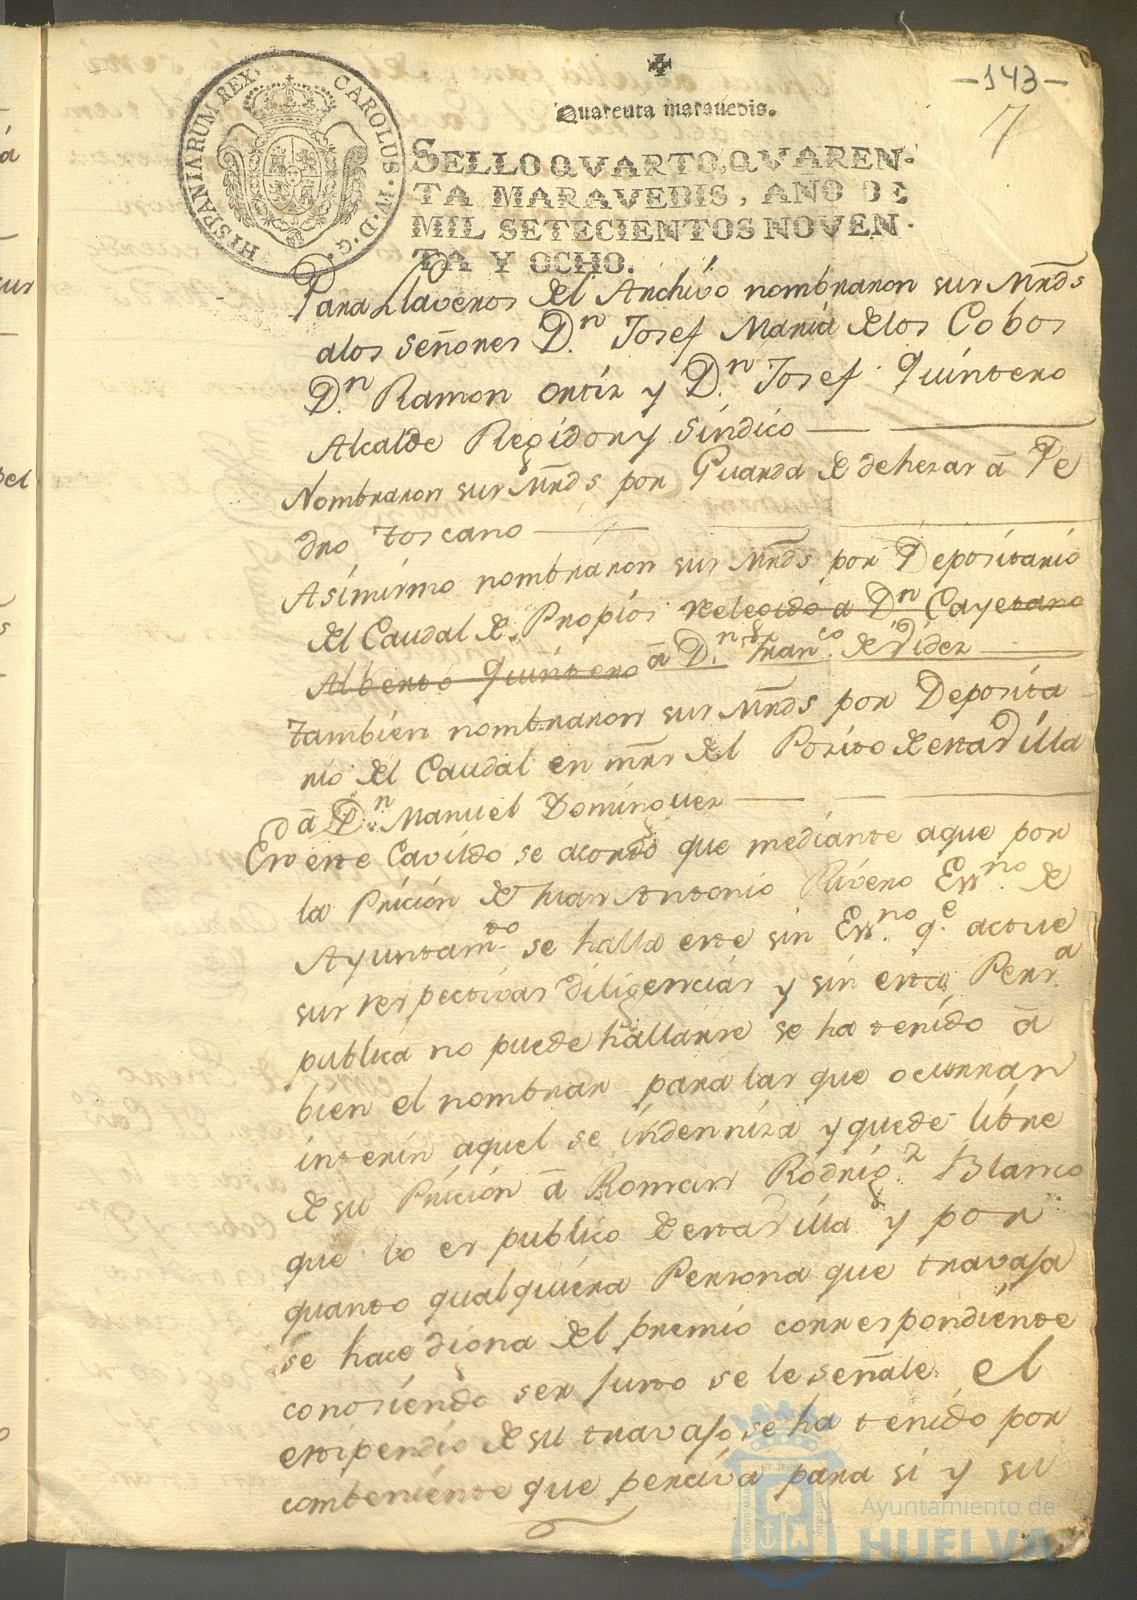 -143-
7
Quarenta maravedis.
HISPANIARUM REX. CAROLUS·IV·D·G·
SELLO QVARTO, QVAREN-
TA MARAVEDIS, AÑO DE
MIL SETECIENTOS NOVEN-
TA Y OCHO.
Para Llaveros del Archivo nombraron sus Mrds
a los señores Dn. Josef Maria de los Cobos
Dn. Ramon Ortiz y Dn. Josef Quintero
Alcalde Regidor y Sindico
Nombraron sus Mrds por Guarda de dehezas a Pe
dro Toscano
Asimismo nombraron sus Mrds por Depositario
del Caudal de Propios reelegido a Dn Cayetano
Alberto Quintero a Dn. Franco. de
tambien nombraron sus Mrds por Deposita
rio del Caudal en mrs del Posito de esta Villa
a Dn. Manuel Dominguez
En este Cavildo se acordo que mediante a que por
la Pricion de Juan Antonio Rivero Essno. de
Ayuntamto. se halla este sin Essno. qe. actue
sus respectivas diligencias y sin esta Persa.
publica no puede hallarse se ha tenido a
bien el nombrar para las que ocurran
interin aquel se indenniza y quede libre
de su Pricion a Roman Rodrigz. Blanco
que lo es publico de esta Villa y por
quanto qualquiera Persona que travaja
se hace digna del premio correspondiente
conosiendo ser justo se le señale el
estipendio de su travajo, se ha tenido por
combeniente que perciva para si y su
Ayuntamiento de
HUELVA